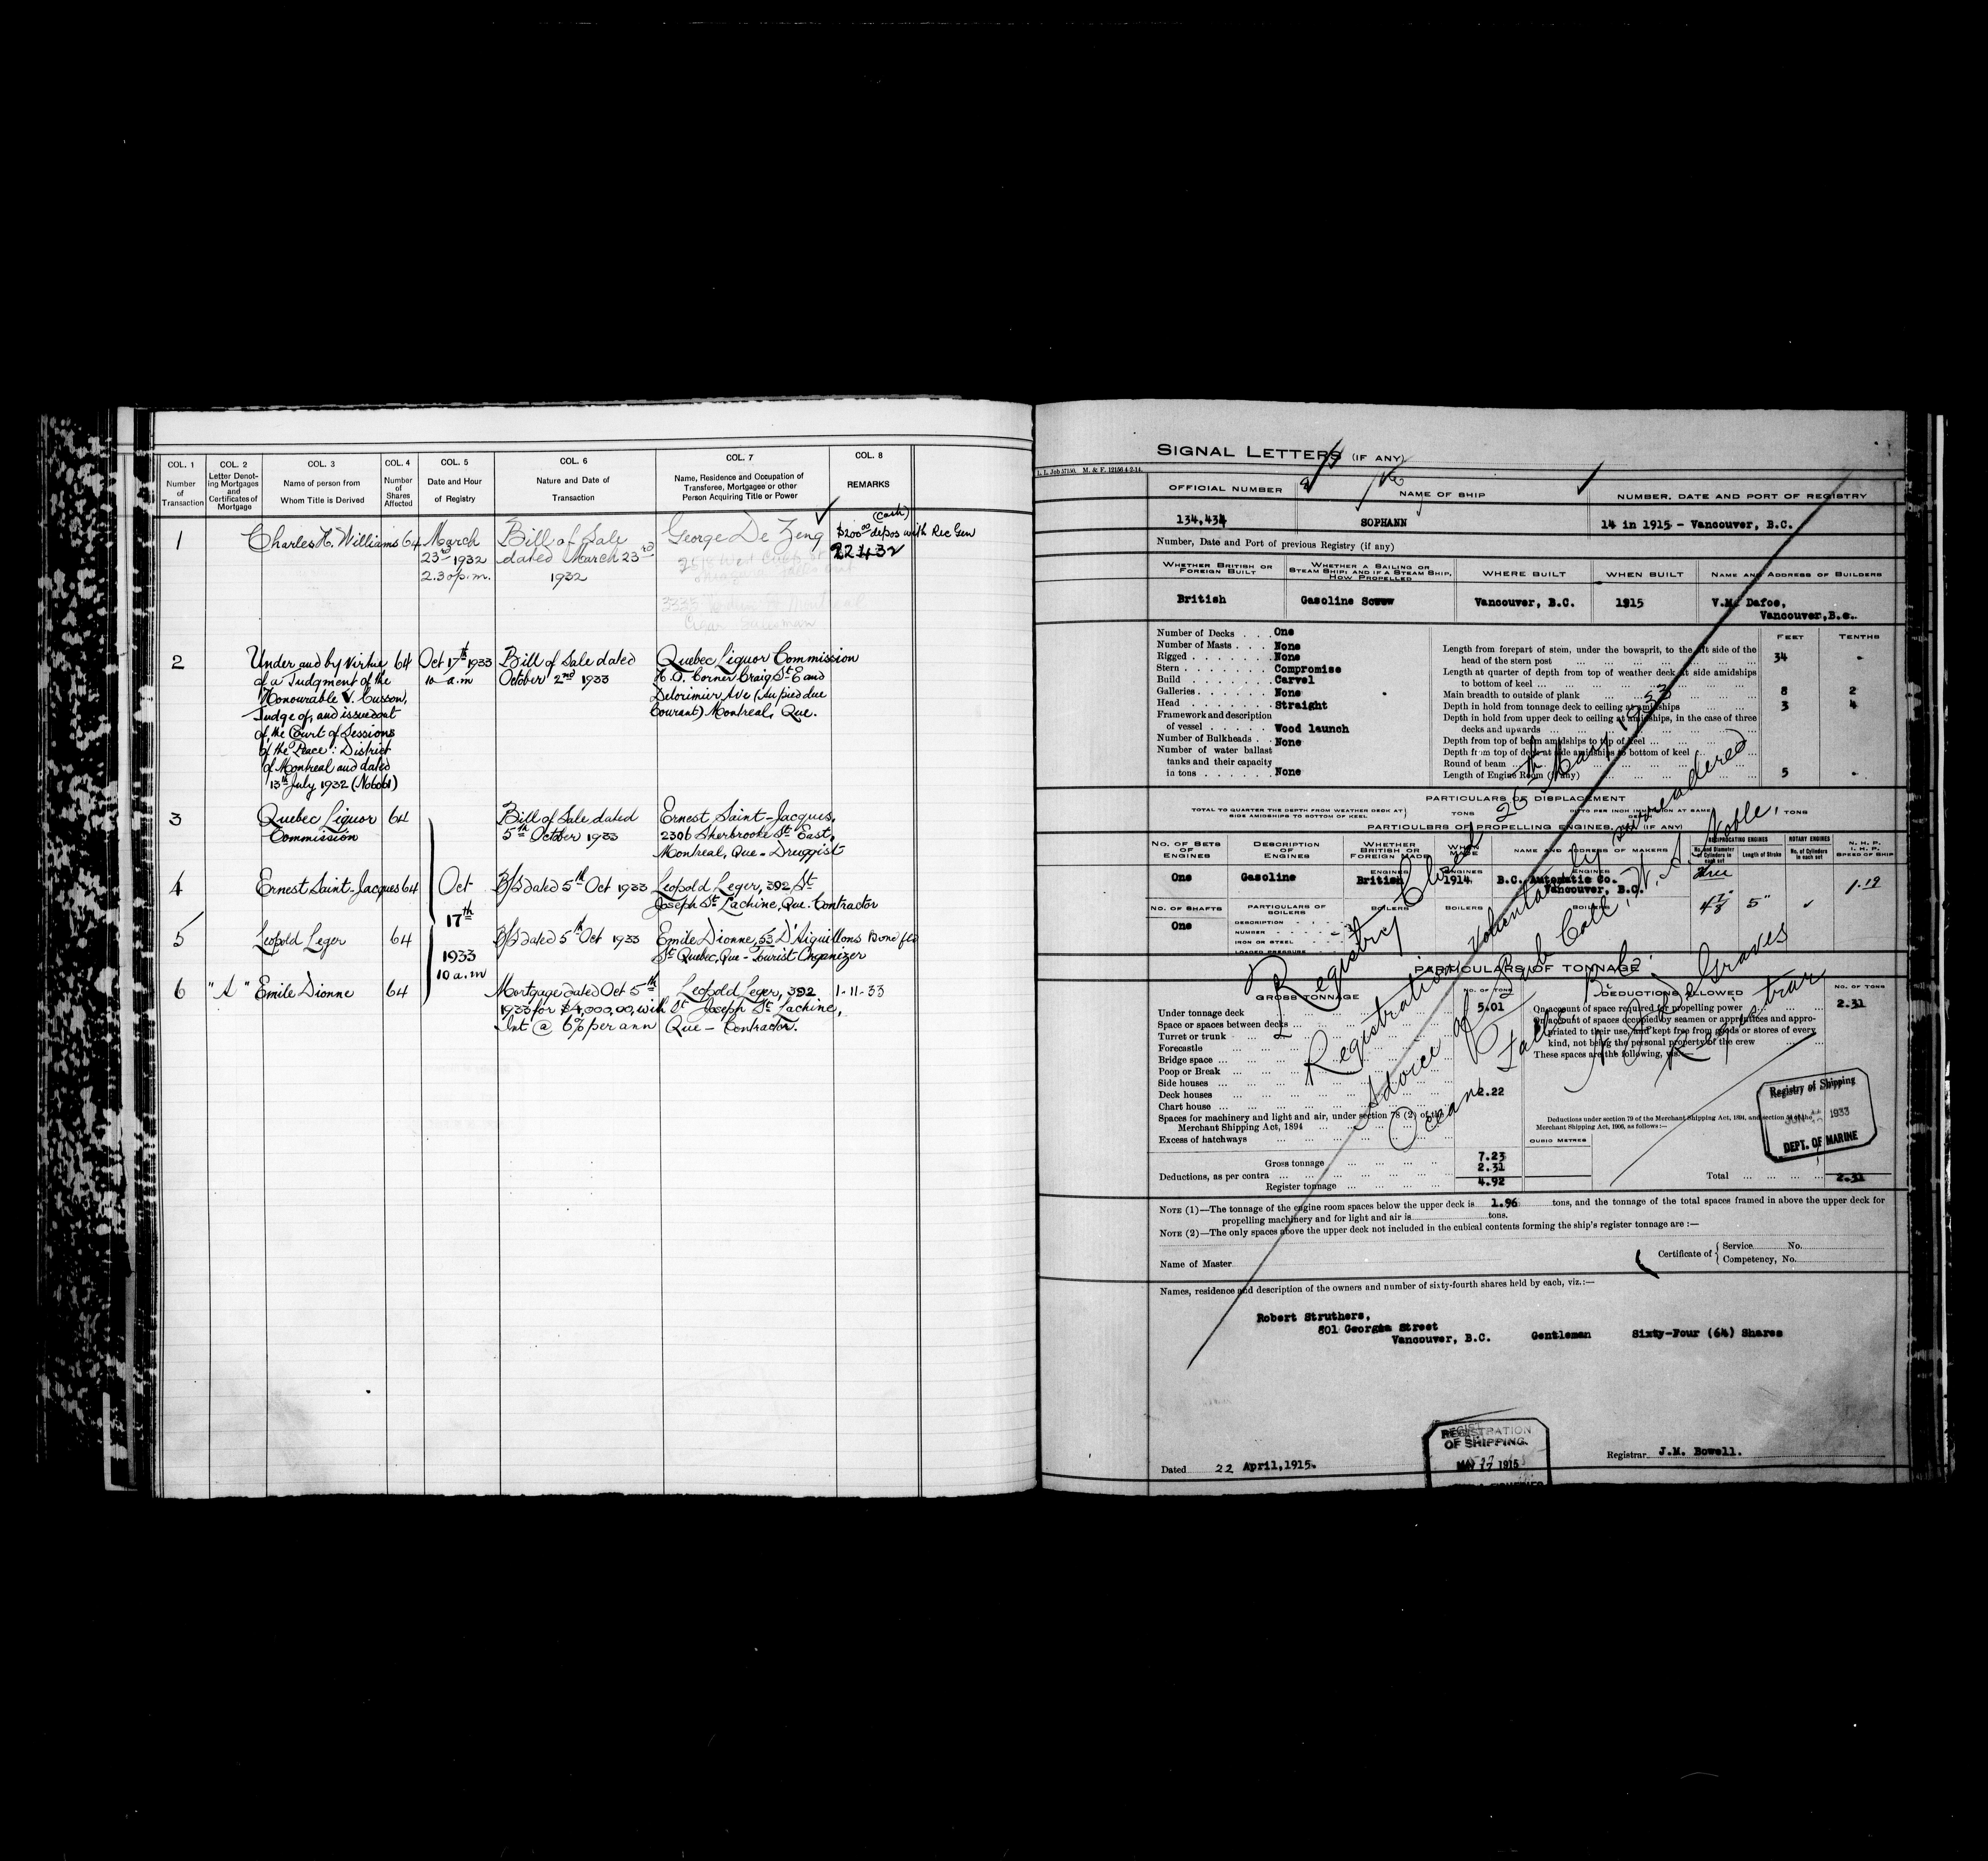 COL. 1 COL. 2 COL. 3 COL. 4 COL. 5 COL. 6 COL. 7 COL. 8
Number of Transaction
Letter Denoting Mortgages and Certificates of Mortgage
Name of person from Whom Title is Derived
Number of Shares Affected
Date and Hour of Registry
Nature and Date of Transaction
Name, Residence and Occupation of Transferee, Mortgagee or other Person Acquiring Title or Power
REMARKS
1 Charles H. Williams 64 March 23rd 1932 2.30 p.m.
Bill of Sale
dated March 23rd
1932
George De Zeng
(Cash)
$200.00 depos with Rec Gen
22.4.32
2 Under and by Virtue 64 Oct 17th 1933
of a Judgment of the 10 a.m
Honourable V. Cusson,
Judge of, and issued out
of the Court of Sessions
of the Peace: District
of Montreal and dated
13th July 1932
Bill of Sale dated
October 2nd 1933
Quebec Liquor Commission
Corner Craig St. E and
Delorimier Ave (Au pied du
Courant) Montreal, Que.
3 Quebec Liquor 64
Commission
Bill of Sale dated
5th October 1933
Ernest Saint-Jacques,
2306 Sherbrooke St East,
Montreal, Que - Druggist
4 Ernest Saint-Jacques 64
Oct
17th
1933
10 a.m
B/S dated 5th Oct 1933
Leopold Leger, 392, St
Joseph St. Lachine, Que. Contractor
5 Leopold Leger 64
B/S dated 5th Oct 1933
Emile Dionne, 53 D'Aiguillons
St Quebec, Que - Tourist Organizer
6 "A" Emile Dionne 64
Mortgage dated Oct 5th
1933 for $4,000.00, with
Int @ 6% per ann
Leopold Leger, 392
St Joseph St. Lachine,
Que - Contractor.
1-11-33
SIGNAL LETTERS (IF ANY)
I. I. Job 57150. M. & F. 12156 4-2-14.
OFFICIAL NUMBER NAME OF SHIP NUMBER, DATE AND PORT OF REGISTRY
134,434 SOPHANN 14 in 1915 - Vancouver, B.C.
Number, Date and Port of previous Registry (if any)
WHETHER BRITISH OR FOREIGN BUILT
WHETHER A SAILING OR STEAM SHIP; AND IF A STEAM SHIP, HOW PROPELLED
WHERE BUILT
WHEN BUILT
NAME AND ADDRESS OF BUILDERS
British Gasoline Screw Vancouver, B.C. 1915 V.M. Dafoe,
Vancouver, B.C.
FEET TENTHS
Number of Decks One
Number of Masts None
Rigged None
Stern Compromise
Build Carvel
Galleries None
Head Straight
Framework and description
of vessel Wood launch
Number of Bulkheads None
Number of water ballast
tanks and their capacity
in tons None
Length from forepart of stem, under the bowsprit, to the aft side of the
head of the stern post 34 -
Length at quarter of depth from top of weather deck at side amidships
to bottom of keel
Main breadth to outside of plank 8 2
Depth in hold from tonnage deck to ceiling at amidships 3 4
Depth in hold from upper deck to ceiling at amidships, in the case of three
decks and upwards
Depth from top of beam amidships to top of keel
Depth from top of deck at side amidships to bottom of keel
Round of beam
Length of Engine Room (if any) 5 -
PARTICULARS OF DISPLACEMENT
TOTAL TO QUARTER THE DEPTH FROM WEATHER DECK AT
SIDE AMIDSHIPS TO BOTTOM OF KEEL TONS DITTO PER INCH IMMERSION AT SAME DEPTH TONS
PARTICULARS OF PROPELLING ENGINES, &c. (IF ANY)
NO. OF SETS OF ENGINES
DESCRIPTION OF ENGINES
WHETHER BRITISH OR FOREIGN MADE
WHEN MADE
NAME AND ADDRESS OF MAKERS
RECIPROCATING ENGINES
No. and Diameter of Cylinders in each set
Length of Stroke
ROTARY ENGINES
No. of Cylinders in each set
N. H. P.
I. H. P.
SPEED OF SHIP
ENGINES ENGINES ENGINES
One Gasoline British 1914 B.C. Automatic Co.
Vancouver, B.C.
three
4 7/8" 5" 1.19
NO. OF SHAFTS PARTICULARS OF BOILERS BOILERS BOILERS BOILERS
One
DESCRIPTION
NUMBER
IRON OR STEEL
LOADED PRESSURE
PARTICULARS OF TONNAGE
GROSS TONNAGE NO. OF TONS DEDUCTIONS ALLOWED NO. OF TONS
Under tonnage deck 5.01
Space or spaces between decks
Turret or trunk
Forecastle
Bridge space
Poop or Break
Side houses
Deck houses 2.22
Chart house
Spaces for machinery and light and air, under section 78 (2) of the
Merchant Shipping Act, 1894
Excess of hatchways
Gross tonnage 7.23
Deductions, as per contra 2.31
Register tonnage 4.92
On account of space required for propelling power 2.31
On account of spaces occupied by seamen or apprentices and appro-
priated to their use, and kept free from goods or stores of every
kind, not being the personal property of the crew
These spaces are the following, viz.:—
Deductions under section 79 of the Merchant Shipping Act, 1894, and section 54 of the
Merchant Shipping Act, 1906, as follows:—
CUBIC METRES
Total 2.31
Registry of Shipping
JUN 1933
DEPT. OF MARINE
Registry Closed 26th May, 1933
Registration voluntarily surrendered
Advice of W. A. Noble,
Ocean Falls B.C.
Registrar
NOTE (1)—The tonnage of the engine room spaces below the upper deck is 1.96 tons, and the tonnage of the total spaces framed in above the upper deck for
propelling machinery and for light and air is tons.
NOTE (2)—The only spaces above the upper deck not included in the cubical contents forming the ship's register tonnage are :—
Name of Master
Certificate of { Service No.
Competency, No.
Names, residence and description of the owners and number of sixty-fourth shares held by each, viz.:—
Robert Struthers,
801 Georgia Street
Vancouver, B.C. Gentleman Sixty-Four (64) Shares
REGISTRATION
OF SHIPPING.
MAY 17 1915
Dated 22 April, 1915.
Registrar J.M. Bowell.